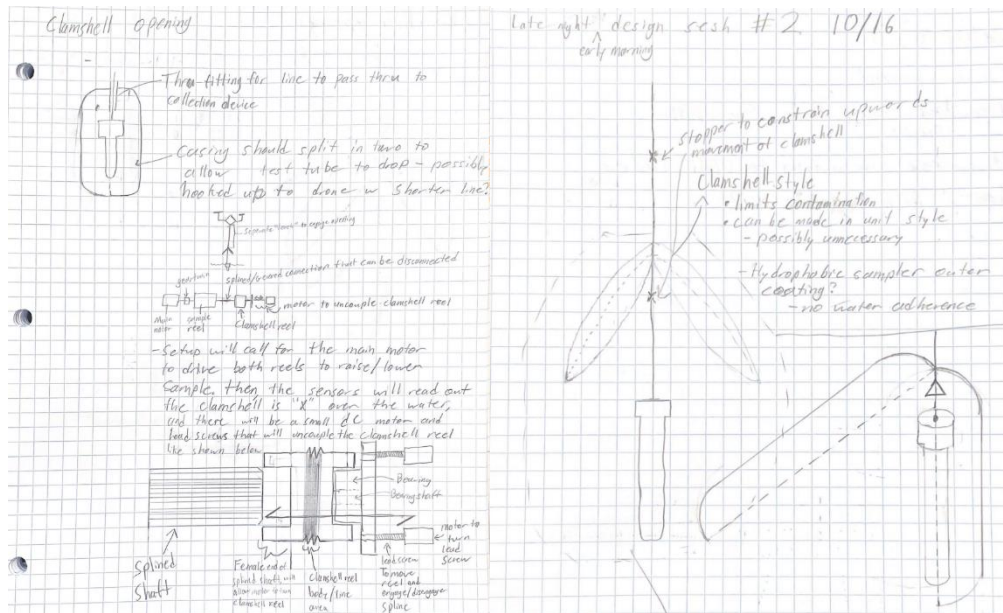 Clamshell opening
Thru-fitting for line to pass thru to
collection device
casing should split in two to
allow test tube to drop - possibly
hooked up to drone w shorter line?
separate
splined/geared connection that can be disconnected
motor to uncouple clamshell reel
main
motor
sample
reel
Clamshell reel
- Setup will call for the main motor
to drive both reels to raise/lower
Sample, then the sensors will read out
the clamshell is "X" over the water,
and there will be a small dc motor and
lead screws that will uncouple the clamshell reel
like shown below
Bearing
Bearing shaft
motor to
turn
lead
screw
Splined
shaft
Female end of
splined shaft, will
allow motor to turn
clamshell reel
Clamshell reel
body/line
area
lead screw
To move
reel and
engage/disengage
spline
Late night design sesh #2 10/16
early morning
stopper to constrain upwards
movement of clamshell
Clamshell style
• limits contamination
• can be made in unit style
- possibly unnecessary
- Hydrophobic sampler outer
coating?
- no water adherence